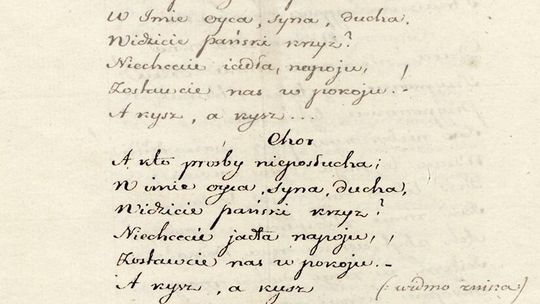 W Imie oyca, syna, ducha,
Widzicie pański krzyż?
Niechcecie iadła, napoju,!
Zostawcie nas w pokoju. -
A kysz, a kysz...
Chor
A kto prośby nieposłucha;
W imie oyca, syna, ducha,
Widzicie pański krzyż?
Niechcecie jadła napoju,!
Zostawcie nas w pokoju. -
A kysz, a kysz (: widmo znika:)